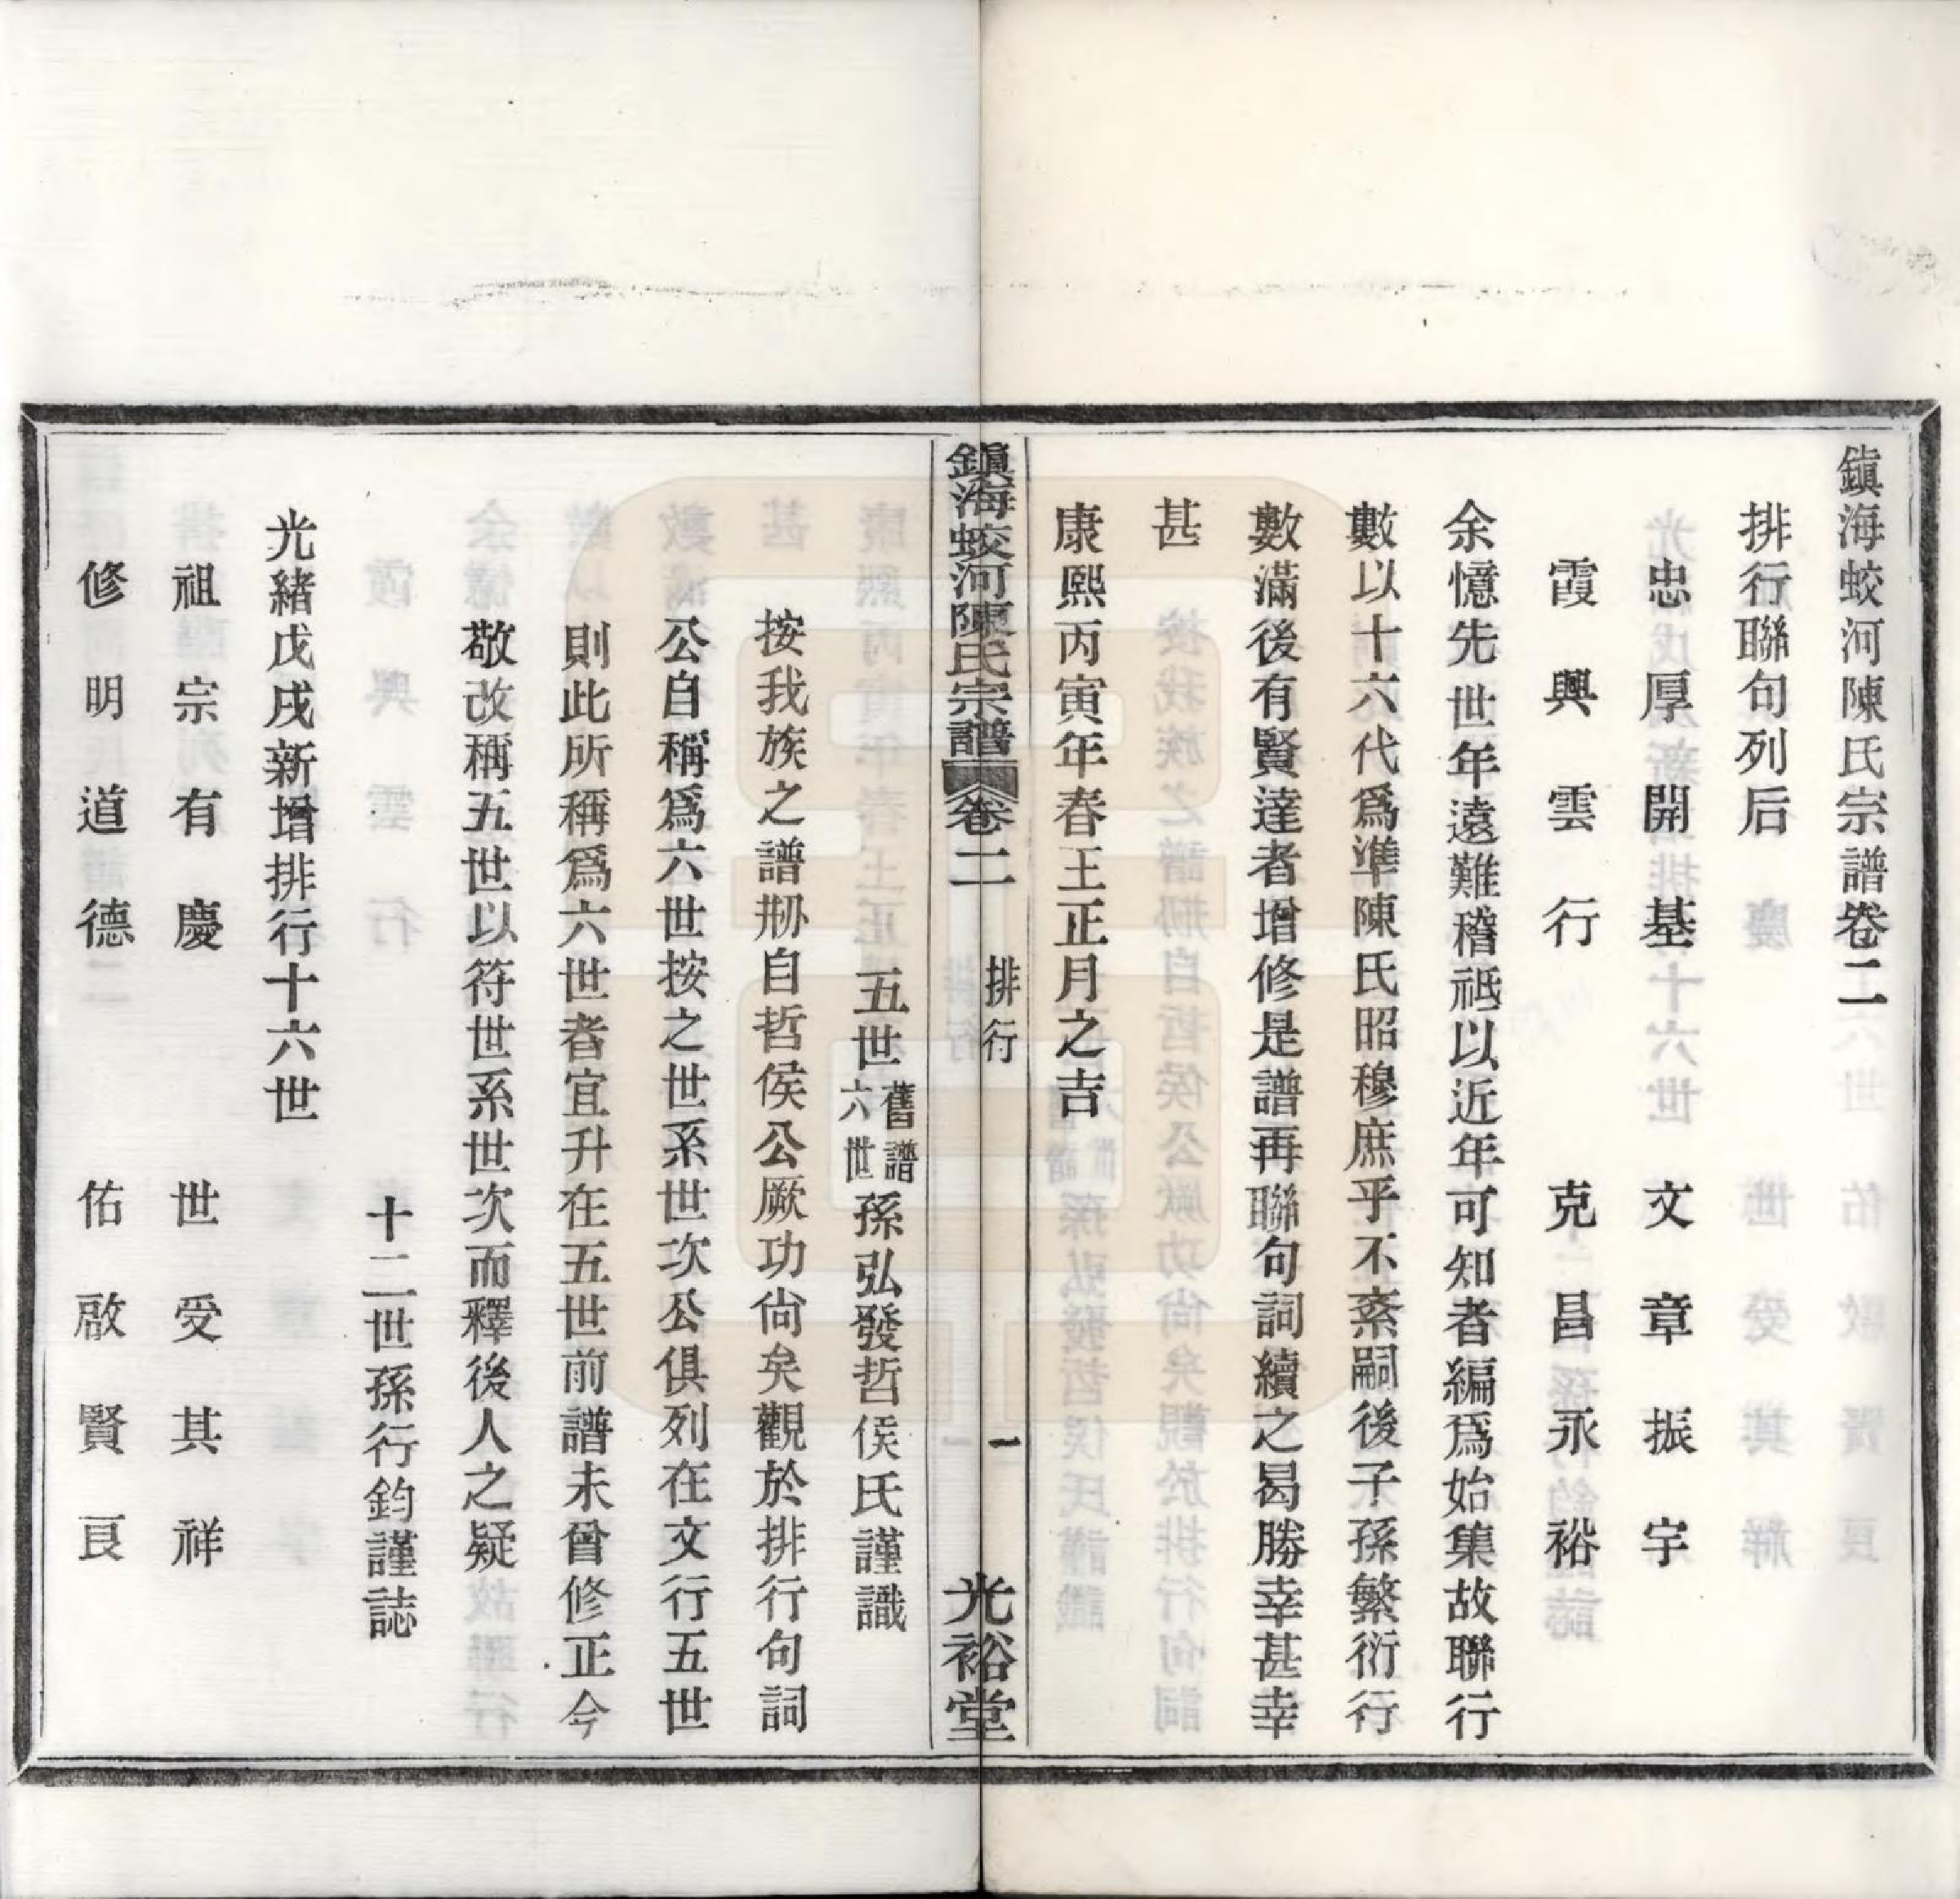 鎮海蛟河陳氏宗譜卷二
排行聯句列后
忠厚開基　文章振宇
霞興雲行　克昌永裕
余憶先世年遠難稽祗以近年可知者編爲始集故聯行
數以十六代爲準陳氏昭穆庶乎不紊嗣後子孫繁衍行
數滿後有賢達者增修是譜再聯句詞續之曷勝幸甚幸
甚
康熙丙寅年春王正月之吉
鎮海蛟河陳氏宗譜　卷二　排行　一　光裕堂
五世舊譜六世孫弘發哲侯氏謹識
按我族之譜刱自哲侯公厥功尙矣觀於排行句詞
公自稱爲六世按之世系世次公俱列在文行五世
則此所稱爲六世者宜升在五世前譜未曾修正今
敬改稱五世以符世系世次而釋後人之疑
十二世孫行鈞謹誌
光緒戊戌新增排行十六世
祖宗有慶　世受其祥
修明道德　佑啟賢良